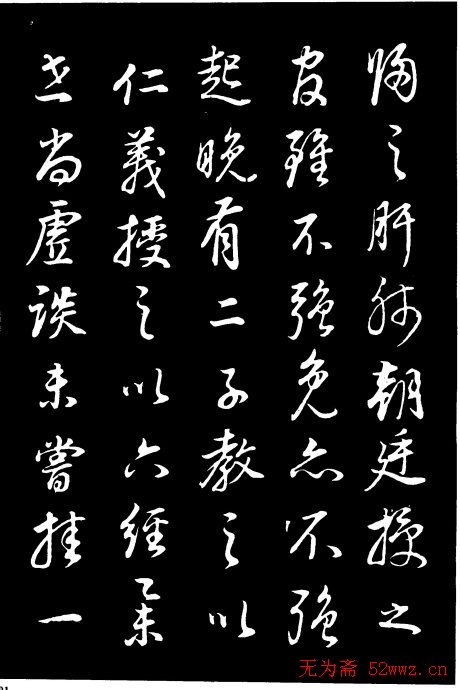 歸之肝肺朝廷授之
官雖不強免亦不強
起晚有二子教之以
仁義授之以六經舉
世尚虛談未嘗挂一
无为斋 52wwz.cn